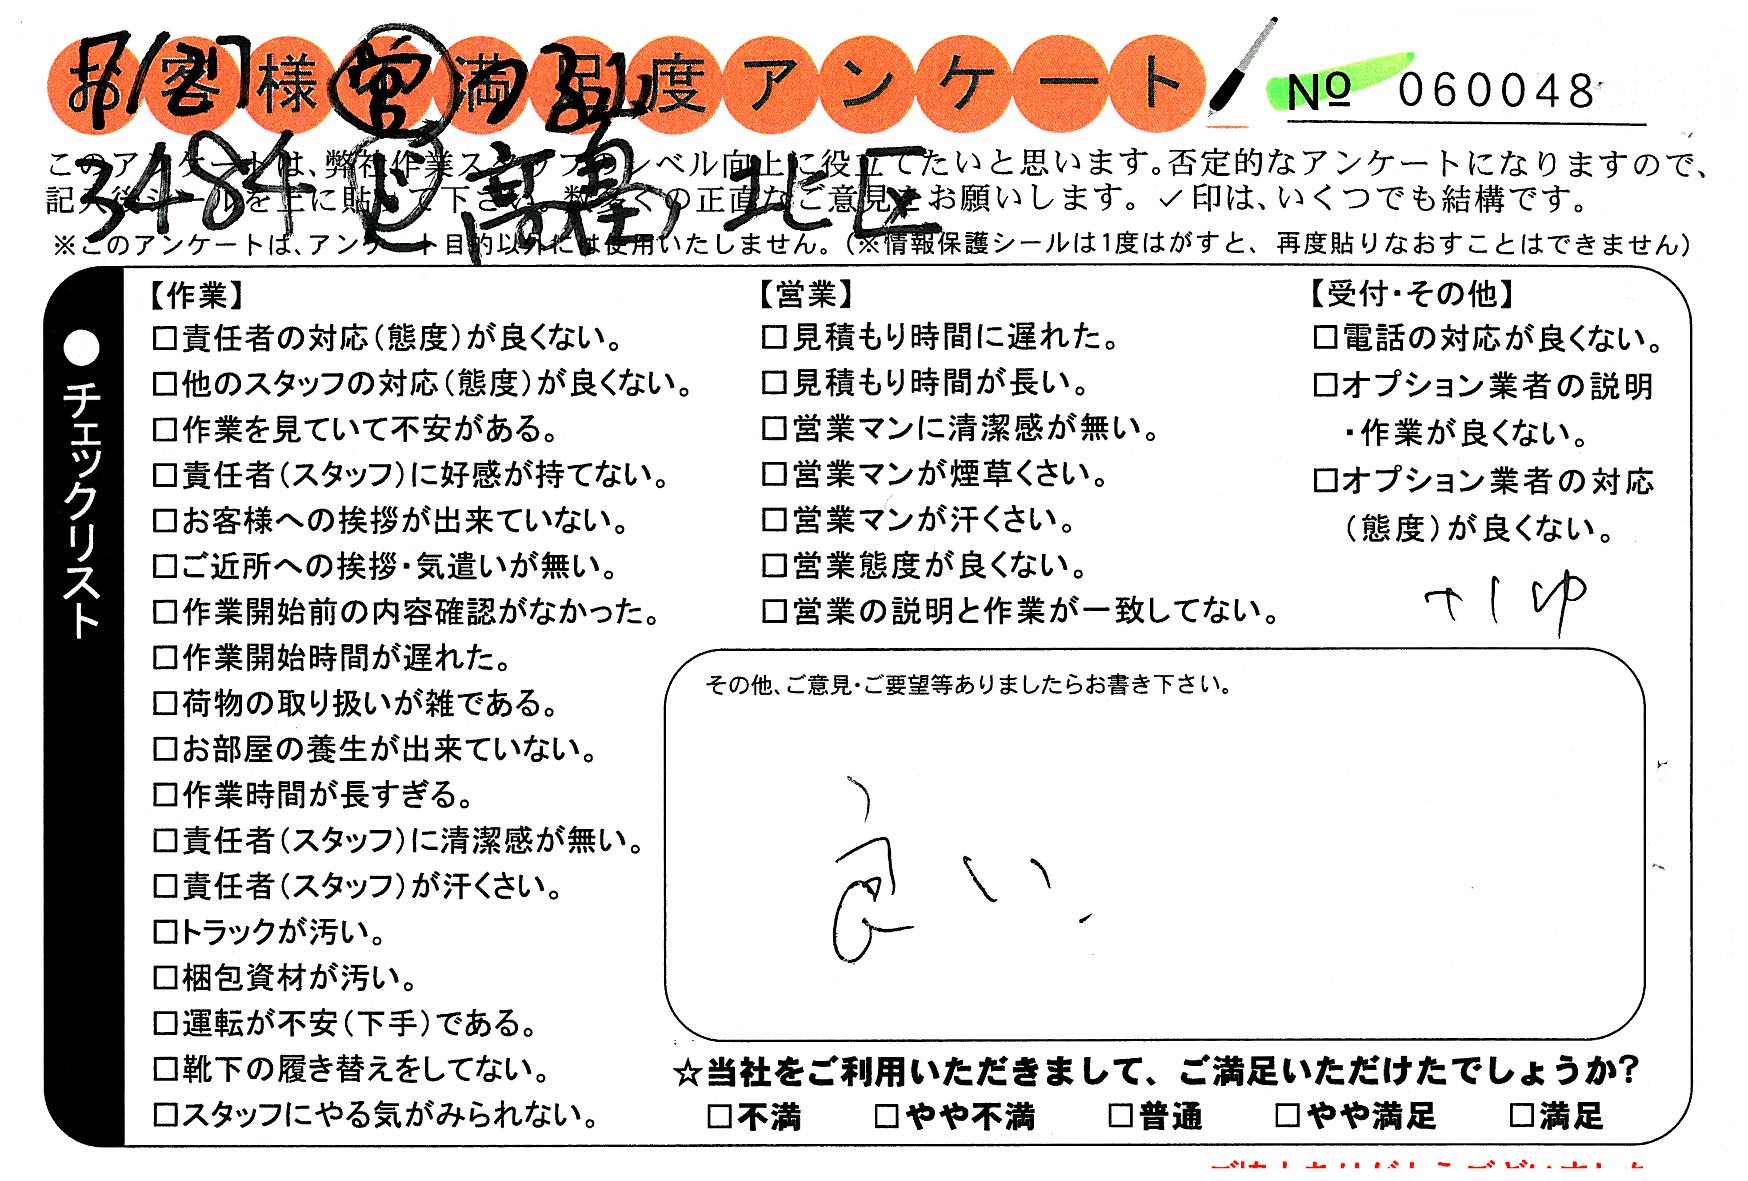 お客様満足度アンケート
№ 060048
3484
北区
このアンケートは、弊社作業スタッフのレベル向上に役立てたいと思います。否定的なアンケートになりますので、
記入後シールを上に貼って下さい。数多くの正直なご意見をお願いします。✓印は、いくつでも結構です。
※このアンケートは、アンケート目的以外には使用いたしません。(※情報保護シールは1度はがすと、再度貼りなおすことはできません)
●チェックリスト
【作業】
□責任者の対応(態度)が良くない。
□他のスタッフの対応(態度)が良くない。
□作業を見ていて不安がある。
□責任者(スタッフ)に好感が持てない。
□お客様への挨拶が出来ていない。
□ご近所への挨拶・気遣いが無い。
□作業開始前の内容確認がなかった。
□作業開始時間が遅れた。
□荷物の取り扱いが雑である。
□お部屋の養生が出来ていない。
□作業時間が長すぎる。
□責任者(スタッフ)に清潔感が無い。
□責任者(スタッフ)が汗くさい。
□トラックが汚い。
□梱包資材が汚い。
□運転が不安(下手)である。
□靴下の履き替えをしてない。
□スタッフにやる気がみられない。
【営業】
□見積もり時間に遅れた。
□見積もり時間が長い。
□営業マンに清潔感が無い。
□営業マンが煙草くさい。
□営業マンが汗くさい。
□営業態度が良くない。
□営業の説明と作業が一致してない。
【受付・その他】
□電話の対応が良くない。
□オプション業者の説明
・作業が良くない。
□オプション業者の対応
(態度)が良くない。
その他、ご意見・ご要望等ありましたらお書き下さい。
良い.
☆当社をご利用いただきまして、ご満足いただけたでしょうか?
□不満 □やや不満 □普通 □やや満足 □満足